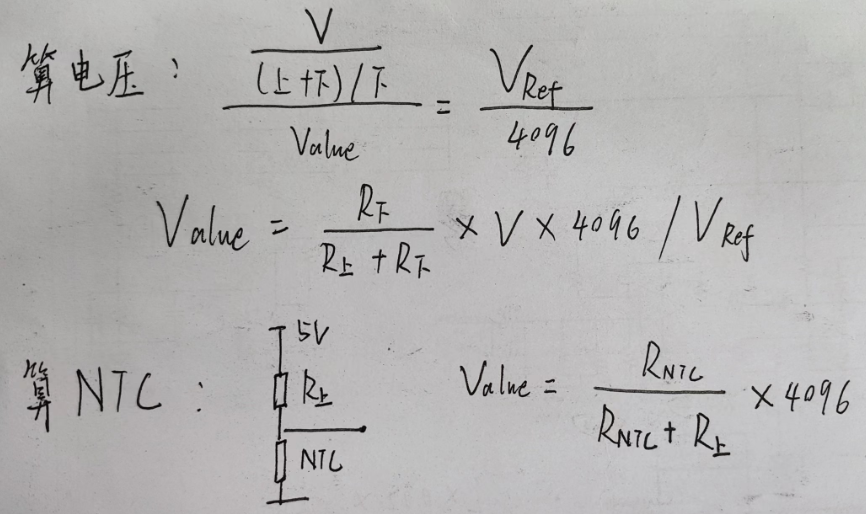 算电压： V/((上+下)/下)/Value = VRef/4096
Value = R下/(R上+R下) × V × 4096 / VRef
算NTC： 5V R上 NTC
Value = RNTC/(RNTC+R上) × 4096